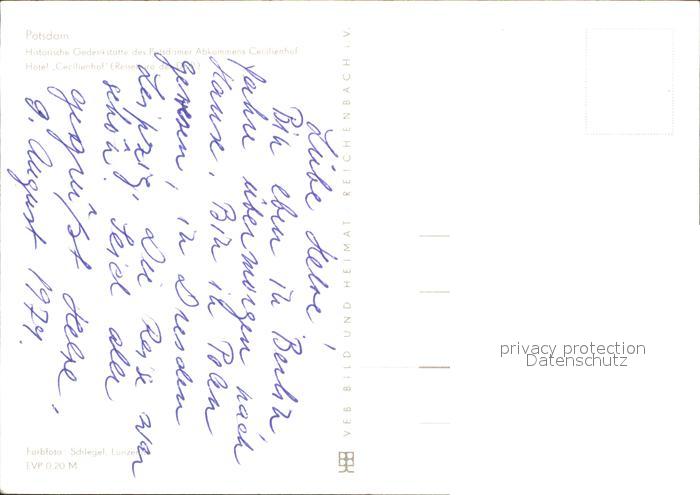 Potsdam
Historische Gedenkstätte des Potsdamer Abkommens Cecilienhof
Hotel „Cecilienhof“ (Reisebüro der DDR)
Liebe
Bin eben in Berlin,
fahre übermorgen nach
Hause. Bin in Polen
gewesen, in Dresden
Leipzig, die Reise war
schön. Seid alle
gegrüßt
9. August 1974.
VEB BILD UND HEIMAT REICHENBACH i. V.
Farbfoto: Schlegel,
EVP 0,20 M
privacy protection
Datenschutz